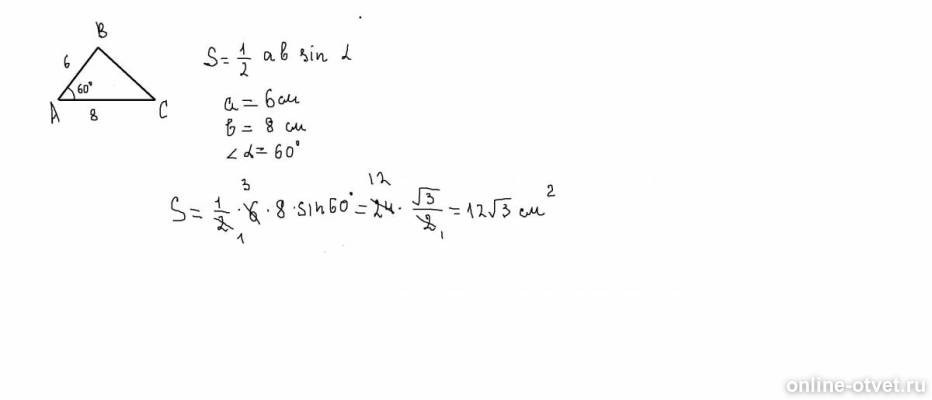 B
6
60°
A
8
C
S = 1/2 ab sin α
a = 6 см
b = 8 см
∠α = 60°
S = 1/2 · 6 · 8 · sin 60° = 24 · √3/2 = 12√3 см²
3
1
12
1
online-otvet.ru